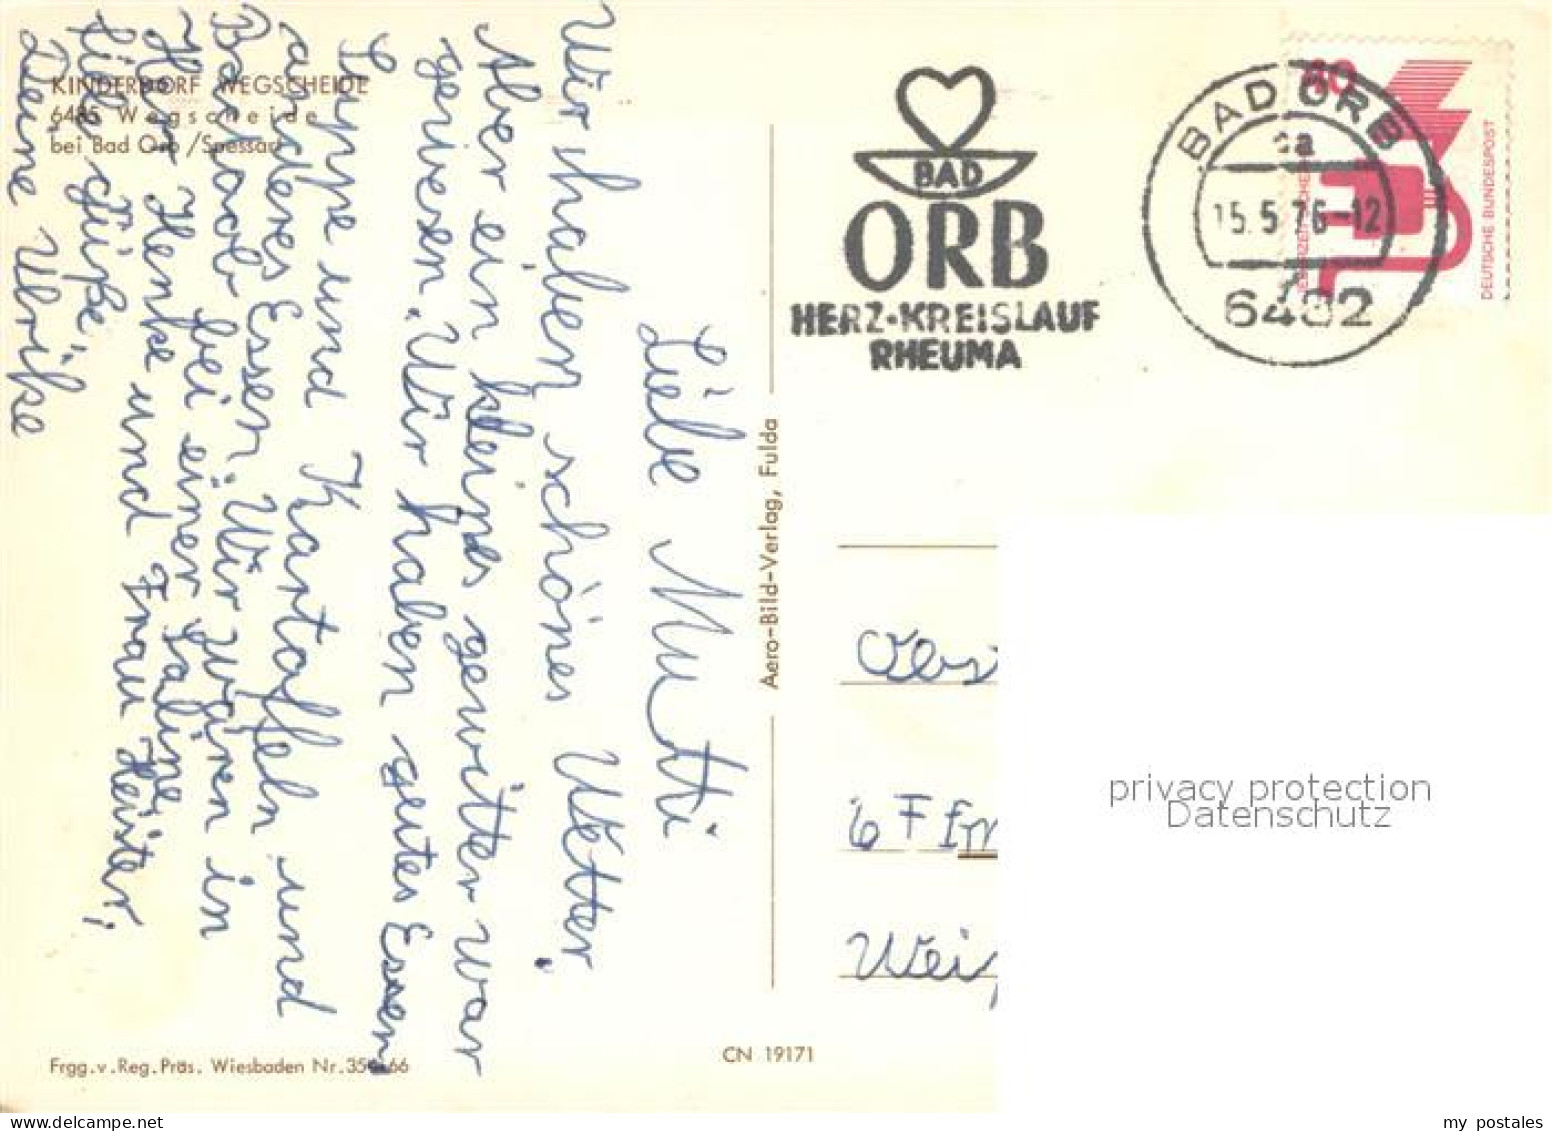 KINDERDORF WEGSCHEIDE
6485 Wegscheide
bei Bad Orb/Spessart
Liebe Mutti
Wir haben schönes Wetter.
Aber ein kleines gewitter war
gewesen. Wir haben gutes Essen
Suppe und Kartoffeln und
anderes Essen. Wir waren in
Bad orb bei einer Saline,
Herr Henke und Frau Heister,
file Grüße,
Deine Ulrike
Frgg.v.Reg.Präs. Wiesbaden Nr. 66
CN 19171
Aero-Bild-Verlag, Fulda
BAD
ORB
HERZ-KREISLAUF
RHEUMA
BAD ORB
15.5.76-12
6482
DEUTSCHE BUNDESPOST
6 Ffm
privacy protection
Datenschutz
my postales